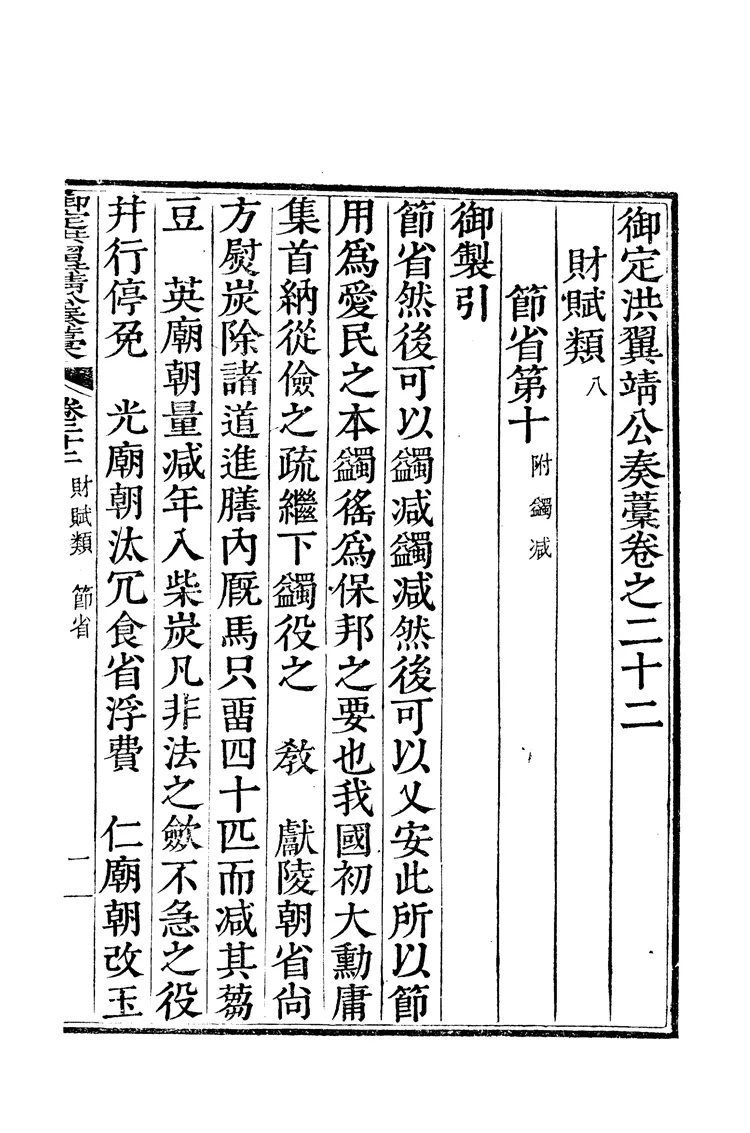 御定洪翼靖公奏藁卷之二十二
財賦類 八
節省第十 附蠲减
御製引
節省然後可以蠲减蠲减然後可以乂安此所以節
用爲愛民之本蠲徭爲保邦之要也我國初大勳庸
集首納從儉之疏繼下蠲役之 敎 獻陵朝省尙
方熨炭除諸道進膳內厩馬只畱四十匹而减其蒭
豆 英廟朝量减年入柴炭凡非法之歛不急之役
幷行停免 光廟朝汰冗食省浮費 仁廟朝改玉
御定洪翼靖公奏藁 卷二十二 財賦類 節省 一